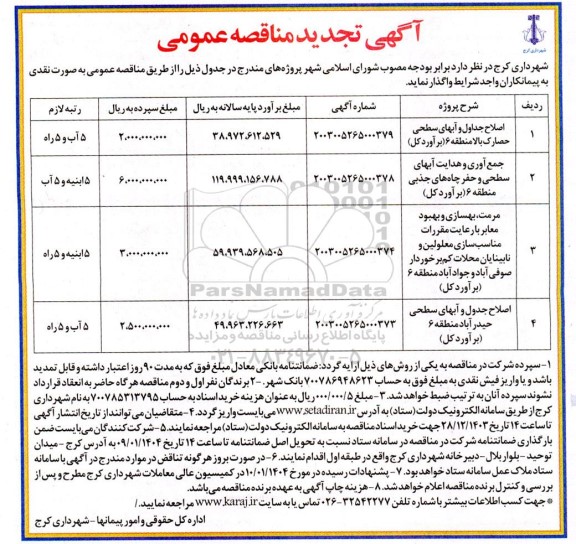 شهرداری کرج
آگهی تجدید مناقصه عمومی
شهرداری کرج در نظر دارد برابر بودجه مصوب شورای اسلامی شهر پروژه‌های مندرج در جدول ذیل را از طریق مناقصه عمومی به صورت نقدی
به پیمانکاران واجد شرایط واگذار نماید.
ردیف شرح پروژه شماره آگهی مبلغ برآورد پایه سالانه به ریال مبلغ سپرده به ریال رتبه لازم
۱ اصلاح جداول و آبهای سطحی حصارک بالا منطقه ۶ (برآورد کل) ۲۰۰۳۰۰۵۲۶۵۰۰۰۳۷۹ ۳۸.۹۷۲.۶۱۲.۵۲۹ ۲.۰۰۰.۰۰۰.۰۰۰ ۵ آب و ۵ راه
۲ جمع آوری و هدایت آبهای سطحی و حفر چاه‌های جذبی منطقه ۶ (برآورد کل) ۲۰۰۳۰۰۵۲۶۵۰۰۰۳۷۸ ۱۱۹.۹۹۹.۱۵۶.۷۸۸ ۶.۰۰۰.۰۰۰.۰۰۰ ۵ ابنیه و ۵ آب
۳ مرمت، بهسازی و بهبود معابر با رعایت مقررات مناسب‌سازی معلولین و نابینایان محلات کم‌برخوردار صوفی آباد و جواد آباد منطقه ۶ (برآورد کل) ۲۰۰۳۰۰۵۲۶۵۰۰۰۳۷۴ ۵۹.۹۳۹.۵۶۸.۵۰۵ ۳.۰۰۰.۰۰۰.۰۰۰ ۵ ابنیه و ۵ راه
۴ اصلاح جداول و آبهای سطحی حیدر آباد منطقه ۶ (برآورد کل) ۲۰۰۳۰۰۵۲۶۵۰۰۰۳۷۳ ۴۹.۹۶۳.۲۲۶.۶۶۳ ۲.۵۰۰.۰۰۰.۰۰۰ ۵ آب و ۵ راه
ParsNamadData
پایگاه اطلاع رسانی مناقصه و مزایده
۰۲۱-۸۸۳۴۹۶۷۰-۵
۱- سپرده شرکت در مناقصه به یکی از روش‌های ذیل ارایه گردد: ضمانتنامه بانکی معادل مبلغ فوق که به مدت ۹۰ روز اعتبار داشته و قابل تمدید
باشد و یا واریز فیش نقدی به مبلغ فوق به حساب ۷۰۰۷۸۶۹۴۸۶۲۳ بانک شهر. ۲- برندگان نفر اول و دوم مناقصه هرگاه حاضر به انعقاد قرارداد
نشوند سپرده آنان به ترتیب ضبط خواهد شد. ۳- مبلغ ۵/۰۰۰/۰۰۰ ریال به عنوان هزینه خرید اسناد به حساب ۷۰۰۷۸۵۳۱۳۷۹۵ به نام شهرداری
کرج از طریق سامانه الکترونیک دولت (ستاد) به آدرس www.setadiran.ir می‌بایست واریز گردد. ۴- متقاضیان می‌توانند از تاریخ انتشار آگهی
تا ساعت ۱۴ تاریخ ۲۸/۱۲/۱۴۰۳ جهت خرید اسناد مناقصه به سامانه الکترونیک دولت (ستاد) مراجعه نمایند. ۵- شرکت کنندگان می‌بایست ضمن
بارگذاری ضمانتنامه شرکت در مناقصه در سامانه ستاد نسبت به تحویل اصل ضمانتنامه تا ساعت ۱۴ تاریخ ۰۹/۰۱/۱۴۰۴ به آدرس کرج - میدان
توحید - بلوار بلال - دبیرخانه شهرداری کرج واقع در طبقه اول اقدام نمایند. ۶- در صورت بروز هرگونه تناقض در موارد مندرج در آگهی با سامانه
ستاد ملاک عمل سامانه ستاد خواهد بود. ۷- پیشنهادات رسیده در مورخ ۱۰/۰۱/۱۴۰۴ در کمیسیون عالی معاملات شهرداری کرج مطرح و پس از
بررسی و کنترل برنده مناقصه اعلام خواهد شد. ۸- هزینه چاپ آگهی به عهده برنده مناقصه می‌باشد.
* جهت کسب اطلاعات بیشتر با شماره تلفن ۳۲۵۴۲۲۷۷-۰۲۶ تماس یا به سایت www.karaj.ir مراجعه نمایید./
اداره کل حقوقی و امور پیمانها - شهرداری کرج